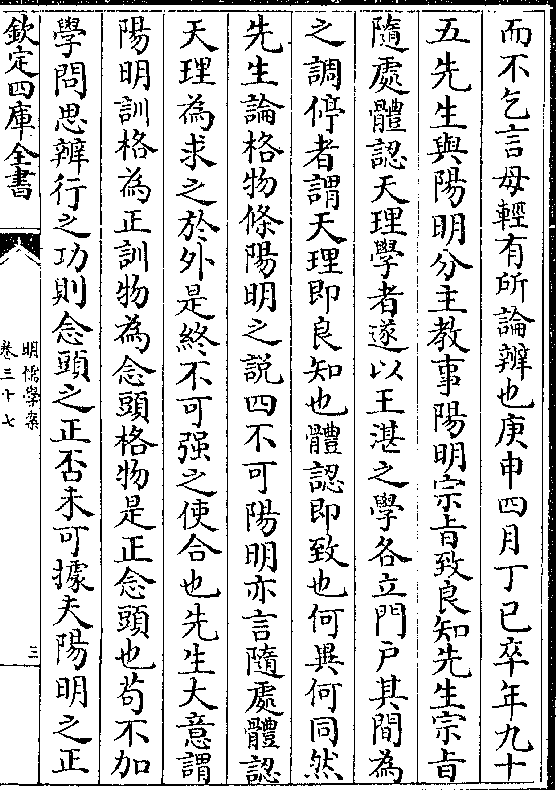 而不乞言毋輕有所論辨也庚申四月丁巳卒年九十
五先生與陽明分主教事陽明宗旨致良知先生宗旨
隨處體認天理學者遂以王湛之學各立門户其間為
之調停者謂天理即良知也體認即致也何異何同然
先生論格物條陽明之說四不可陽明亦言隨處體認
天理為求之於外是終不可强之使合也先生大意謂
陽明訓格為正訓物為念頭格物是正念頭也苟不加
學問思辨行之功則念頭之正否未可據夫陽明之正
欽定四庫全書
明儒學案
卷三十七
三